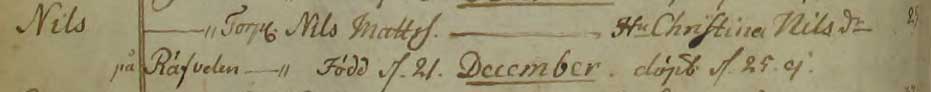 Nils — „ Torp. Nils Matts. — Hu Christina Nils dr
på Räfvelen — „ Född d. 21. December. döpt d. 25. ej.